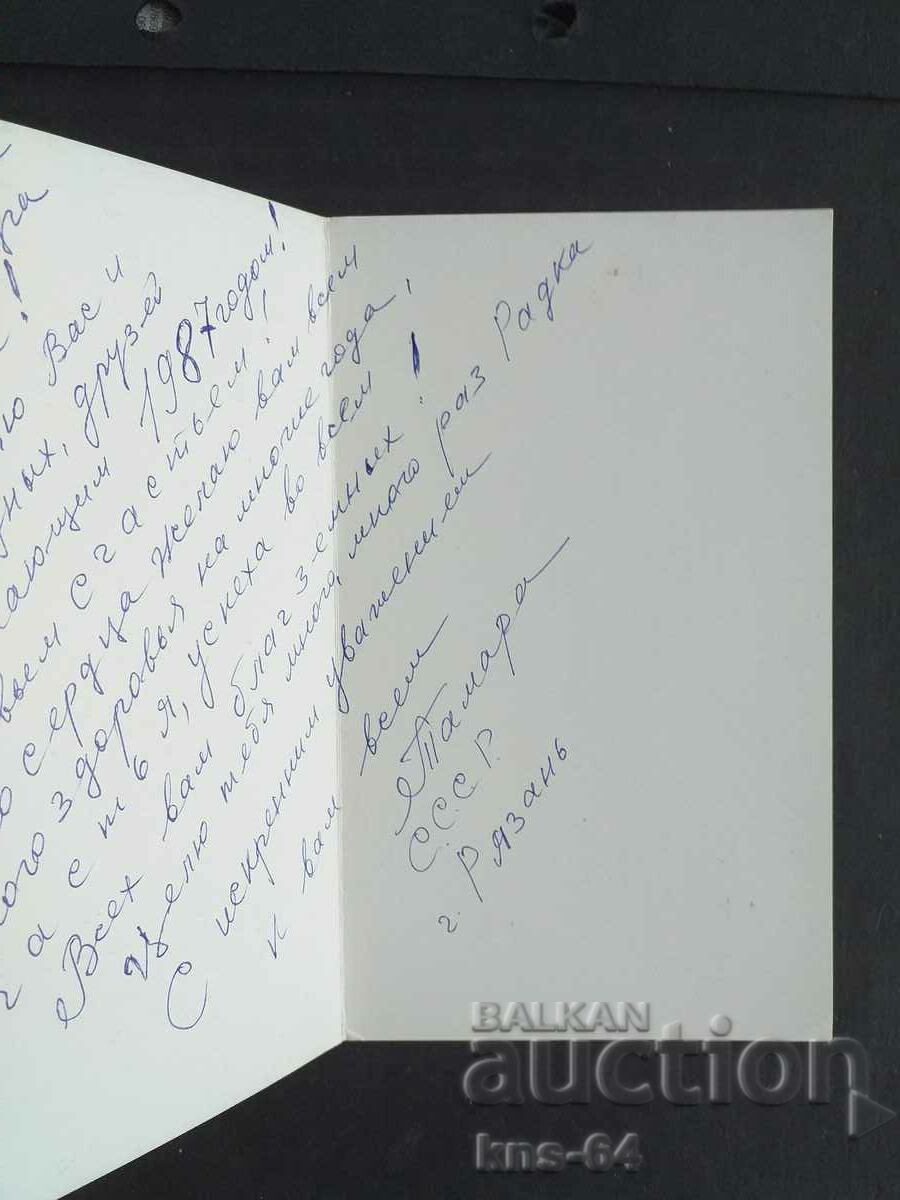 !
Вас и
друзей
1987 годом!
счастьем!
сердца желаю вам всем
здоровья на многие года,
астья, успеха во всем
Всех вам благ земных!
целю тебя много, много раз Радка
С искренним уважением
к вам всем
Тамара
С.С.С.Р.
г. Рязань
BALKAN
auction
kns-64